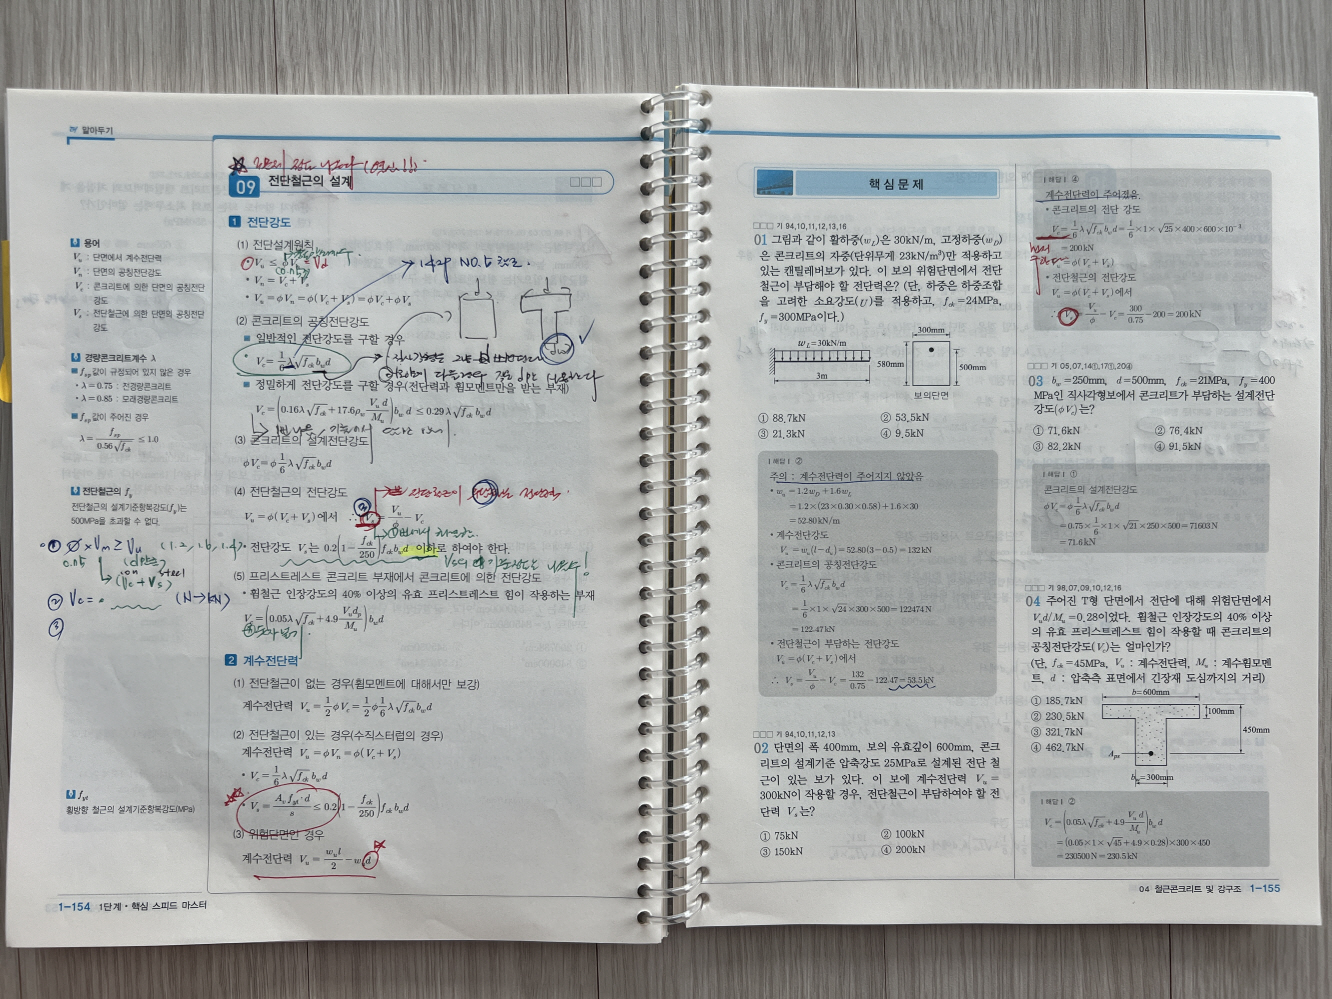 알아두기
09 전단철근의 설계 □□□
1 전단강도
용어
Vu : 단면에서 계수전단력
Vn : 단면의 공칭전단강도
Vc : 콘크리트에 의한 단면의 공칭전단
강도
Vs : 전단철근에 의한 단면의 공칭전단
강도
경량콘크리트계수 λ
■ fsp값이 규정되어 있지 않은 경우
• λ = 0.75 : 전경량콘크리트
• λ = 0.85 : 모래경량콘크리트
■ fsp값이 주어진 경우
λ = fsp / 0.56√fck ≤ 1.0
전단철근의 fy
전단철근의 설계기준항복강도(fy)는
500MPa을 초과할 수 없다.
① ∅ × Vn ≥ Vu (1.2, 1.6, 1.4)
(Vc + Vs)
② Vc =
(N→kN)
③
fyt
횡방향 철근의 설계기준항복강도(MPa)
(1) 전단설계원칙
• Vu ≤ Vd
• Vn = Vc + Vs
• Vu = φVn = φ(Vc + Vs) = φVc + φVs
142p NO.5
(2) 콘크리트의 공칭전단강도
■ 일반적인 전단강도를 구할 경우
• Vc = 1/6 λ√fck bw d
■ 정밀하게 전단강도를 구할 경우(전단력과 휨모멘트만을 받는 부재)
Vc = (0.16λ√fck + 17.6ρw Vu d / Mu) bw d ≤ 0.29λ√fck bw d
(3) 콘크리트의 설계전단강도
φVc = φ 1/6 λ√fck bw d
(4) 전단철근의 전단강도
Vu = φ(Vc + Vs)에서 ∴ Vs = Vu / φ − Vc
• 전단강도 Vs는 0.2(1 − fck / 250) fck bw d 이하로 하여야 한다.
(5) 프리스트레스트 콘크리트 부재에서 콘크리트에 의한 전단강도
• 휨철근 인장강도의 40% 이상의 유효 프리스트레스트 힘이 작용하는 부재
Vc = (0.05λ√fck + 4.9 Vu dp / Mu) bw d
2 계수전단력
(1) 전단철근이 없는 경우(휨모멘트에 대해서만 보강)
계수전단력 Vu = 1/2 φVc = 1/2 φ 1/6 λ√fck bw d
(2) 전단철근이 있는 경우(수직스터럽의 경우)
계수전단력 Vu = φVn = φ(Vc + Vs)
• Vc = 1/6 λ√fck bw d
• Vs = Av fyt · d / s ≤ 0.2(1 − fck / 250) fck bw d
(3) 위험단면인 경우
계수전단력 Vu = wu l / 2 − wu d
1-154 1단계 · 핵심 스피드 마스터
핵심문제
□□□ 기 94,10,11,12,13,16
01 그림과 같이 활하중(wL)은 30kN/m, 고정하중(wD)
은 콘크리트의 자중(단위무게 23kN/m³)만 작용하고
있는 캔틸레버보가 있다. 이 보의 위험단면에서 전단
철근이 부담해야 할 전단력은? (단, 하중은 하중조합
을 고려한 소요강도(U)를 적용하고, fck = 24MPa,
fy = 300MPa이다.)
wL = 30kN/m
3m
300mm
580mm
500mm
보의단면
① 88.7kN ② 53.5kN
③ 21.3kN ④ 9.5kN
|해답| ②
주의 : 계수전단력이 주어지지 않았음
• wu = 1.2wD + 1.6wL
= 1.2×(23×0.30×0.58) + 1.6×30
= 52.80kN/m
• 계수전단력
Vu = wu(l − d) = 52.80(3 − 0.5) = 132kN
• 콘크리트의 공칭전단강도
Vc = 1/6 λ√fck bw d
= 1/6 ×1×√24×300×500 = 122474N
= 122.47kN
• 전단철근이 부담하는 전단강도
Vu = φ(Vc + Vs)에서
∴ Vs = Vu / φ − Vc = 132 / 0.75 − 122.47 = 53.5kN
□□□ 기 94,10,11,12,13
02 단면의 폭 400mm, 보의 유효깊이 600mm, 콘크
리트의 설계기준 압축강도 25MPa로 설계된 전단 철
근이 있는 보가 있다. 이 보에 계수전단력 Vu =
300kN이 작용할 경우, 전단철근이 부담하여야 할 전
단력 Vs는?
① 75kN ② 100kN
③ 150kN ④ 200kN
|해답| ④
계수전단력이 주어졌음.
• 콘크리트의 전단 강도
Vc = 1/6 λ√fck bw d = 1/6 ×1×√25×400×600×10⁻³
= 200kN
Vu = φ(Vc + Vs)
• 전단철근의 전단강도
Vu = φ(Vc + Vs)에서
∴ Vs = Vu / φ − Vc = 300 / 0.75 − 200 = 200kN
□□□ 기 05,07,14①,17①,20④
03 bw = 250mm, d = 500mm, fck = 21MPa, fy = 400
MPa인 직사각형보에서 콘크리트가 부담하는 설계전단
강도(φVc)는?
① 71.6kN ② 76.4kN
③ 82.2kN ④ 91.5kN
|해답| ①
콘크리트의 설계전단강도
φVc = φ 1/6 λ√fck bw d
= 0.75× 1/6 ×1×√21×250×500 = 71603N
= 71.6kN
□□□ 기 98,07,09,10,12,16
04 주어진 T형 단면에서 전단에 대해 위험단면에서
Vu d/Mu = 0.28이었다. 휨철근 인장강도의 40% 이상
의 유효 프리스트레스트 힘이 작용할 때 콘크리트의
공칭전단강도(Vc)는 얼마인가?
(단, fck = 45MPa, Vu : 계수전단력, Mu : 계수휨모멘
트, d : 압축측 표면에서 긴장재 도심까지의 거리)
① 185.7kN
② 230.5kN
③ 321.7kN
④ 462.7kN
b=600mm
100mm
450mm
Aps
bw=300mm
|해답| ②
Vc = (0.05λ√fck + 4.9 Vu d / Mu) bw d
= (0.05×1×√45 + 4.9×0.28)×300×450
= 230500N = 230.5kN
04 철근콘크리트 및 강구조 1-155